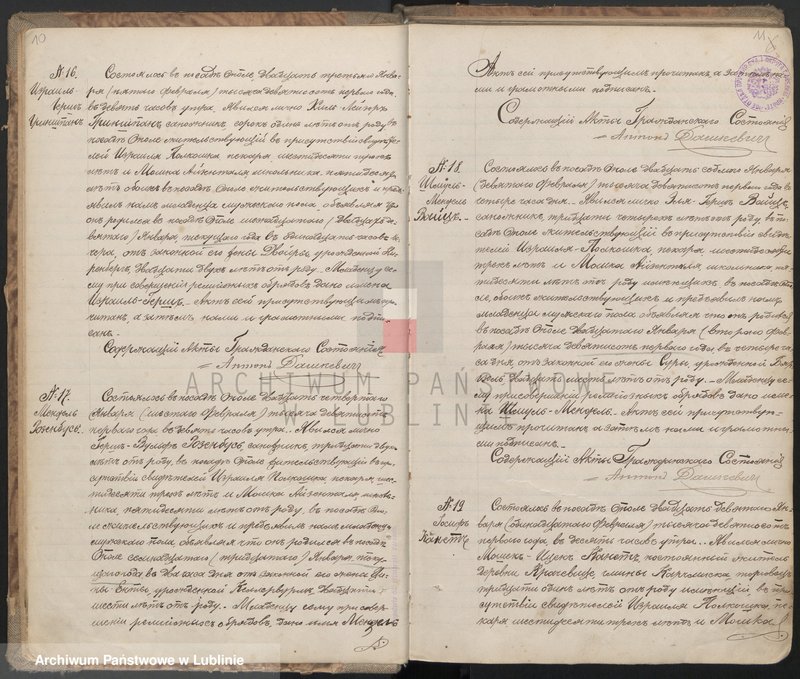 10
№ 16.
Израиль
Герш
Гринштан
Состоялось въ посадѣ Ополе, двадцать третьяго Янва-
ря (пятаго Февраля) тысяча девятьсотъ перваго года,
въ девять часовъ утра. Явился лично Хиль Лейзоръ
Гринштан сапожникъ, сорокъ лѣтъ отъ роду въ
посадѣ Ополе жительствующій въ присутствіи свидѣте-
лей Израиля Полкошка пекаря, шестидесяти трехъ
лѣтъ и Мошка Айзенталя школьника, пятидесяти
лѣтъ обоихъ въ посадѣ Ополе жительствующихъ и предъ-
явилъ намъ младенца мужескаго пола, объявляя что
онъ родился въ посадѣ Ополе
Января, текущаго года въ одинадцать часовъ ве-
чера, отъ законной его жены Двойры, урожденной
двадцати двухъ лѣтъ отъ роду. Младенцу се-
му при совершеніи религіозныхъ обрядовъ дано имя
Израиль-Герш. Актъ сей присутствующимъ про-
читанъ, а затѣмъ нами и грамотными подпи-
санъ.
Содержащій Акты Гражданскаго Состоянія
Антонъ Дашкевичъ
№ 17.
Мендель
Розенбухъ.
Состоялось въ посадѣ Ополе двадцать четвертаго
Января (шестого Февраля) тысяча девятьсотъ
перваго года въ девять часовъ утра. Явился лично
Герш-Вульф Розенбухъ, сапожникъ, тридцати двухъ
лѣтъ отъ роду, въ посадѣ Ополе жительствующій въ при-
сутствіи свидѣтелей Израиля Полкошка пекаря, шес-
тидесяти трехъ лѣтъ и Мошка Айзенталя школь-
ника, пятидесяти лѣтъ отъ роду, въ посадѣ Опо-
ле жительствующихъ и предъявилъ намъ младенца
мужескаго пола, объявляя что онъ родился въ посадѣ
Ополе семнадцатаго (тридцатаго) Января, теку-
щаго года въ два часа дня отъ законной его жены
урожденной двадцати
шести лѣтъ отъ роду. Младенцу сему при совер-
шеніи религіозныхъ обрядовъ, дано имя Мендель
11
Актъ сей присутствующимъ прочитанъ, а затѣмъ на-
ми и грамотными подписанъ.
Содержащій Акты Гражданскаго Состоянія
Антонъ Дашкевичъ
№ 18.
Шмуль-
Мендель
Вайцъ.
Состоялось въ посадѣ Ополе двадцать седьмаго Января
(девятаго Февраля) тысяча девятьсотъ перваго года въ
четыре часа дня. Явился лично Эля-Герш Вайцъ,
сапожникъ, тридцати четырехъ лѣтъ отъ роду въ по-
садѣ Ополе жительствующій въ присутствіи свидѣ-
телей Израиля Полкошка, пекаря шестидесяти
трехъ лѣтъ и Мошка Айзенталя школьника, пя-
тидесяти лѣтъ отъ роду въ посадѣ Опо-
ле, обоихъ жительствующихъ и предъявилъ намъ
младенца мужескаго пола объявляя что онъ родился
въ посадѣ Ополе двадцатаго Января (втораго Фев-
раля) тысяча девятьсотъ перваго года, въ четыре ча-
са дня, отъ законной его жены Суры, урожденной
двадцати лѣтъ отъ роду. Младенцу се-
му при совершеніи религіозныхъ обрядовъ дано имя
Шмуль-Мендель. Актъ сей присутствую-
щимъ прочитанъ а затѣмъ нами и грамотны-
ми подписанъ.
Содержащій Акты Гражданскаго Состоянія
Антонъ Дашкевичъ
№ 19
Іосифъ
Канетъ
Состоялось въ посадѣ Ополе двадцать девятаго Ян-
варя (одинадцатаго Февраля) тысяча девятьсотъ
перваго года, въ десять часовъ утра. Явился лично
Мошек-Ицек Канетъ, постоянный житель
деревни гмины Карчмиска торговецъ,
тридцати лѣтъ отъ роду имѣющій, въ при-
сутствіи свидѣтелей Израиля Полкошка, пе-
каря шестидесяти трехъ лѣтъ и Мошка
ARCHIWUM PAŃSTWOWE
W LUBLINIE
Archiwum Państwowe w Lublinie